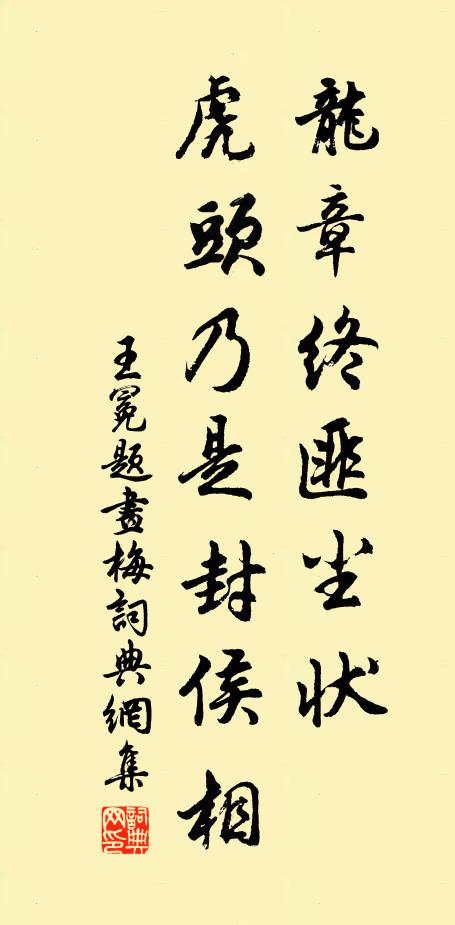 龍章終匪尘状
虎頭乃是封侯相
王冕題畫梅詞典網集
詞典網印